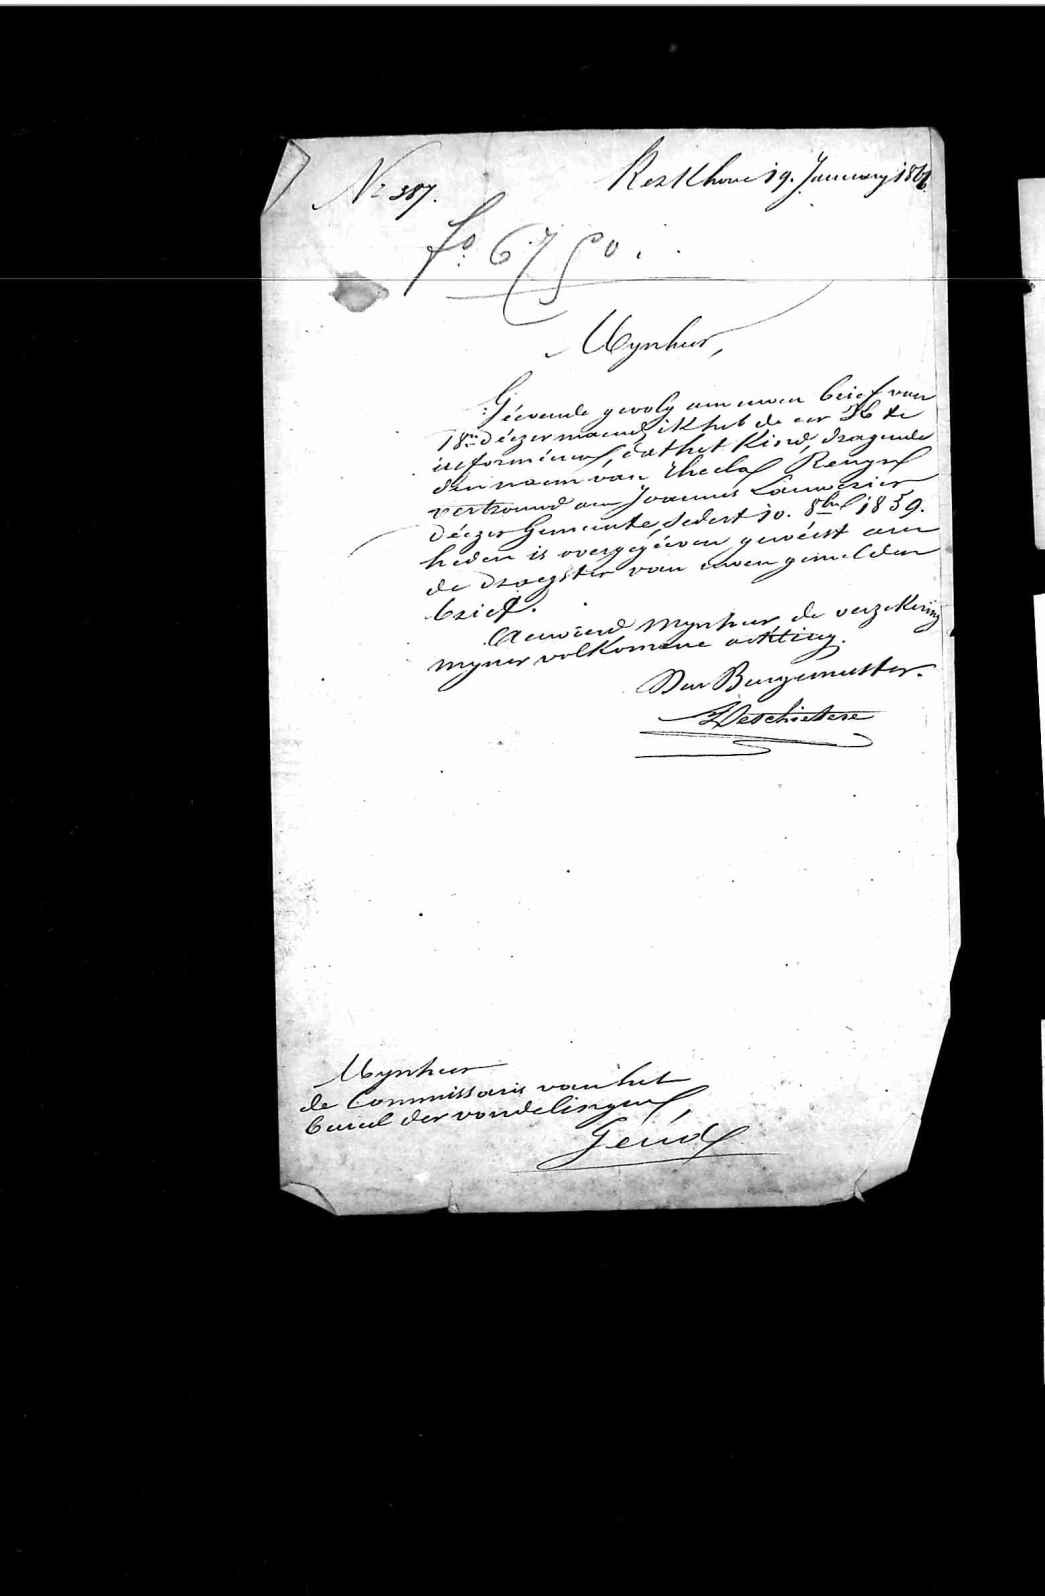 N.º 387.
Kerkhove 19. January 1861.
fº 6750.
Mynheer,
Géevende gevolg aen uwen brief van
18.en déezer maend, ik heb de eer Ub te
informéeren, dat het Kind, dragende
den naem van Thecla Rengel
vertrouwd aen Joannes Lauwerier
déezer Gemeente, sedert 10. 8ber 1859.
heden is overgegéeven gewéest aen
de draegster van uwen gemelden
brief.
Aenvéerd Mynheer de verzekering
myner volkomene achting.
Den Burgemeester.
Deschietere
Mynheer
de Commissaris van het
bureel der vondelingen,
Gend